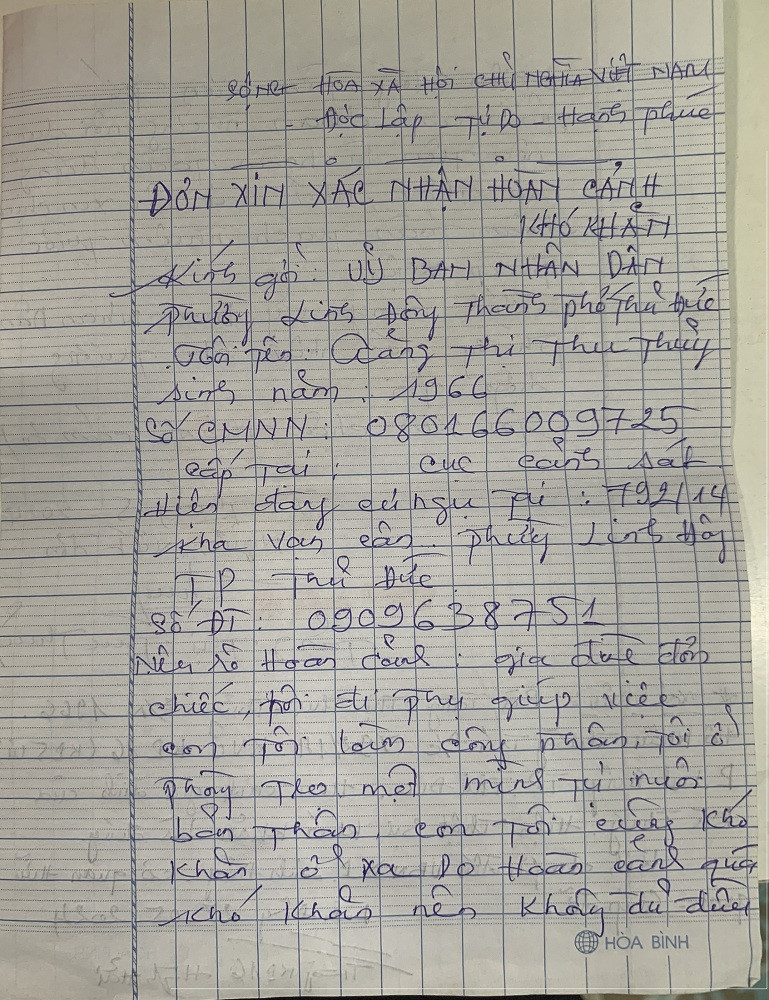 CỘNG HÒA XÃ HỘI CHỦ NGHĨA VIỆT NAM
- Độc Lập - Tự Do - Hạnh phúc
ĐƠN XIN XÁC NHẬN HOÀN CẢNH
KHÓ KHĂN
Kính gởi: UỶ BAN NHÂN DÂN
phường Linh Đông Thành phố Thủ Đức
Tôi tên: Đặng Thị Thu Thủy
Sinh năm: 1966
Số CMNN: 080166009725
cấp Tại: cục cảnh sát
Hiện đang cư ngụ tại: 792/14
Kha Vạn Cân. phường Linh Đông
TP Thủ Đức
Số ĐT: 0909638751
Nêu rõ Hoàn cảnh: gia đình đơn
chiếc, tôi đi phụ giúp việc
con tôi làm công nhân, Tôi ở
phòng Trọ một mình tự nuôi
bản Thân, con Tôi cũng khó
khăn ở xa Do Hoàn cảnh quá
khó khăn nên không đủ điều
HÒA BÌNH